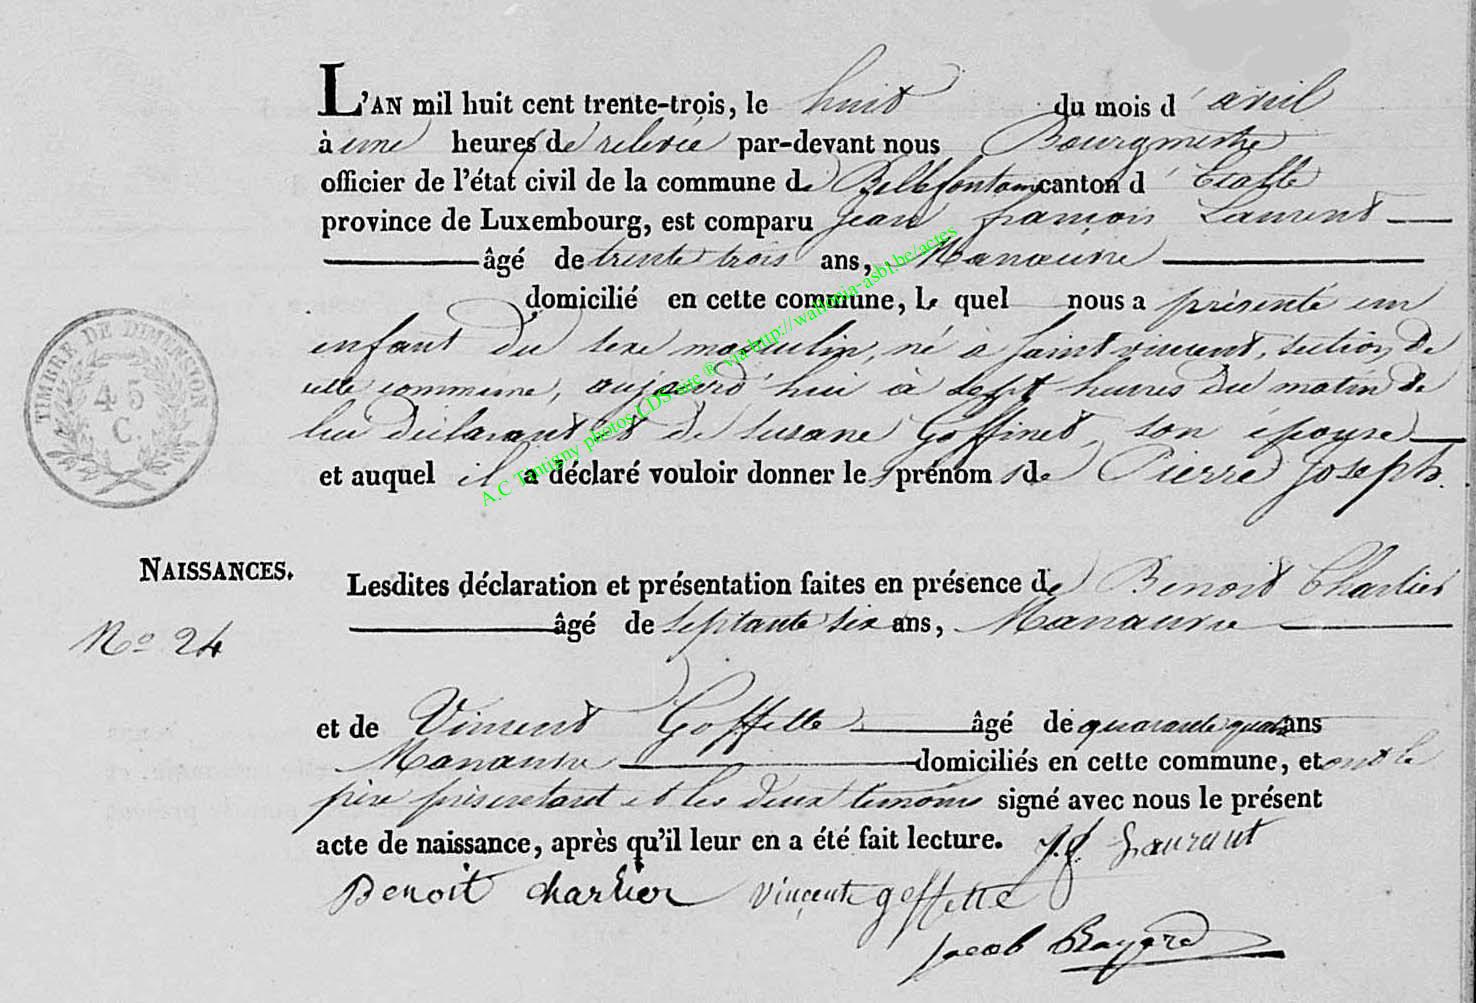 L'AN mil huit cent trente-trois, le huit du mois d'avril
à une heures de relevée par-devant nous Bourgmestre
officier de l'état civil de la commune de Bellefontaine canton d'Etalle
province de Luxembourg, est comparu Jean françois Laurent
âgé de trente trois ans, Manœuvre
domicilié en cette commune, Le quel nous a présenté un
enfant du sexe masculin, né à Saint vincent, section de
cette commune, aujourd'hui à sept heures du matin de
lui déclarant et de Susane Goffinet, son épouse
et auquel il a déclaré vouloir donner les prénoms de Pierre Joseph.
TIMBRE DE DIMENSION
45
C.
NAISSANCES.
No 24
Lesdites déclaration et présentation faites en présence de Benoit Charlier
âgé de septante six ans, Manœuvre
et de Vincent Goffette âgé de quarante quatre ans
Manœuvre domiciliés en cette commune, et ont le
père présentant et les deux témoins signé avec nous le présent
acte de naissance, après qu'il leur en a été fait lecture. J. f. Laurant
Benoit charlier vinçente goffette
Jacob
A.C Tintigny photos LDS site ® via http://wallonia-asbl.be/actes